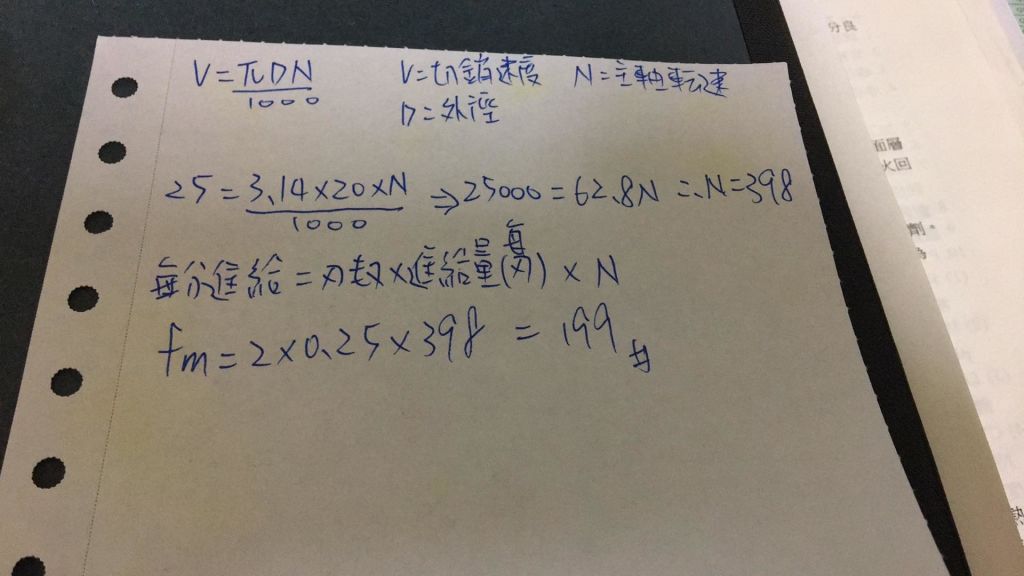 V=πDN/1000 V=切銷速度 N=主軸転速
D=外徑
25=3.14×20×N/1000 ⇒25000=62.8N ∴N=398
每分進給=刃数×進給量(每刃)×N
fm=2×0.25×398=199#
分良
面層
火回
劑。